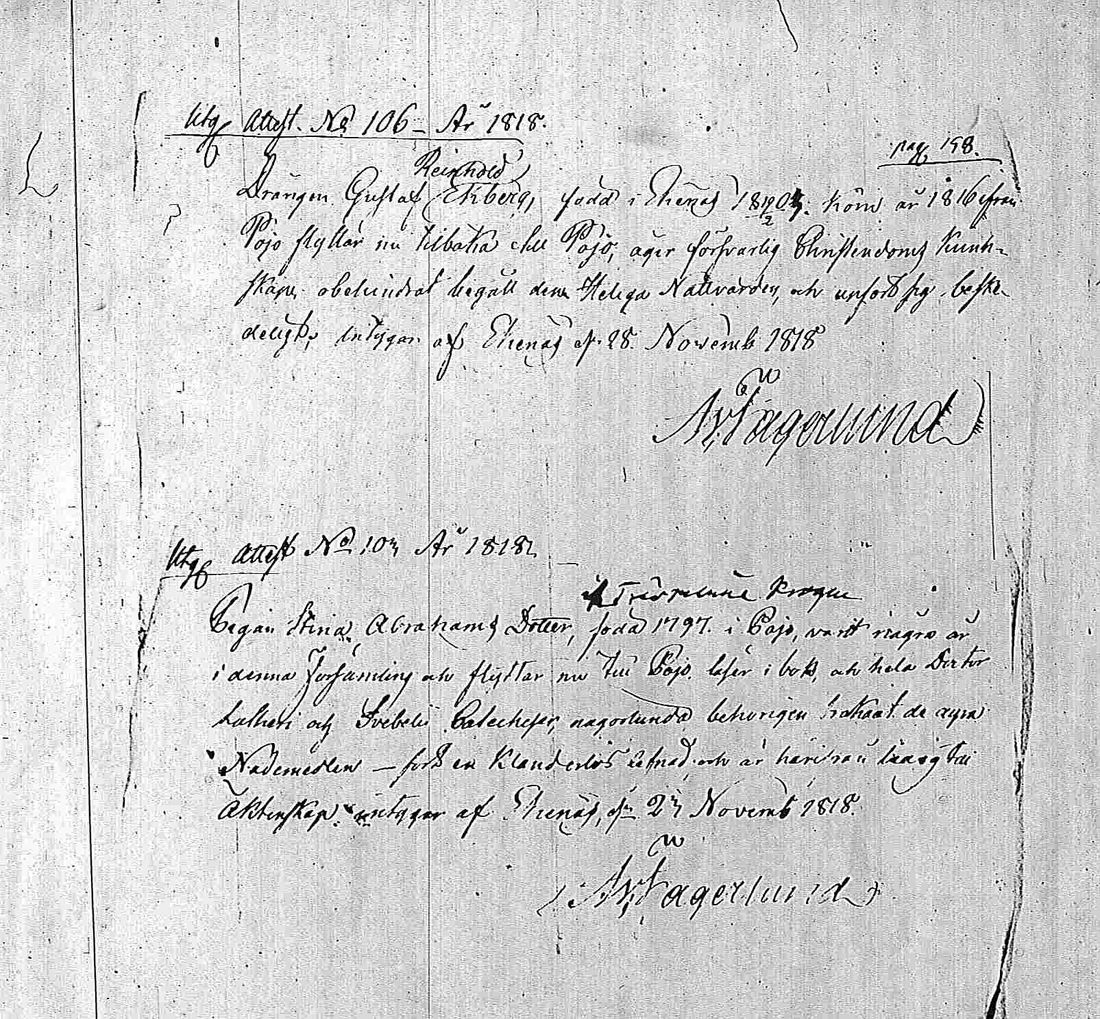 Utg Attest. No 106 – År 1818.
pag 198.
Reinhold
Drängen Gustaf Ekberg, född i Ekenäs 18 kom år 1816 från
Pojo flyttar nu tilbaka till Pojo, äger försvarlig Christendoms kunn-
skap, obehindrat begått den Heliga Nattvarden, och upfört sig beske-
deligt, intygar af Ekenäs d. 28. Novemb 1818
Fagerlund
Utg Attest No 107 År 1818
Pigan Stina Abrahams Dotter, född 1797. i Pojo, varit några år
i denna Församling och flyttar nu till Pojo. läser i bok, och hela Doctor
Lutheri och Svebelii Catecheser, behörigen de
Nådemedlen — fört en klanderlös lefnad, och är härifrån ledig till
Äktenskap. intygar af Ekenäs, d. 27 Novemb 1818.
Fagerlund